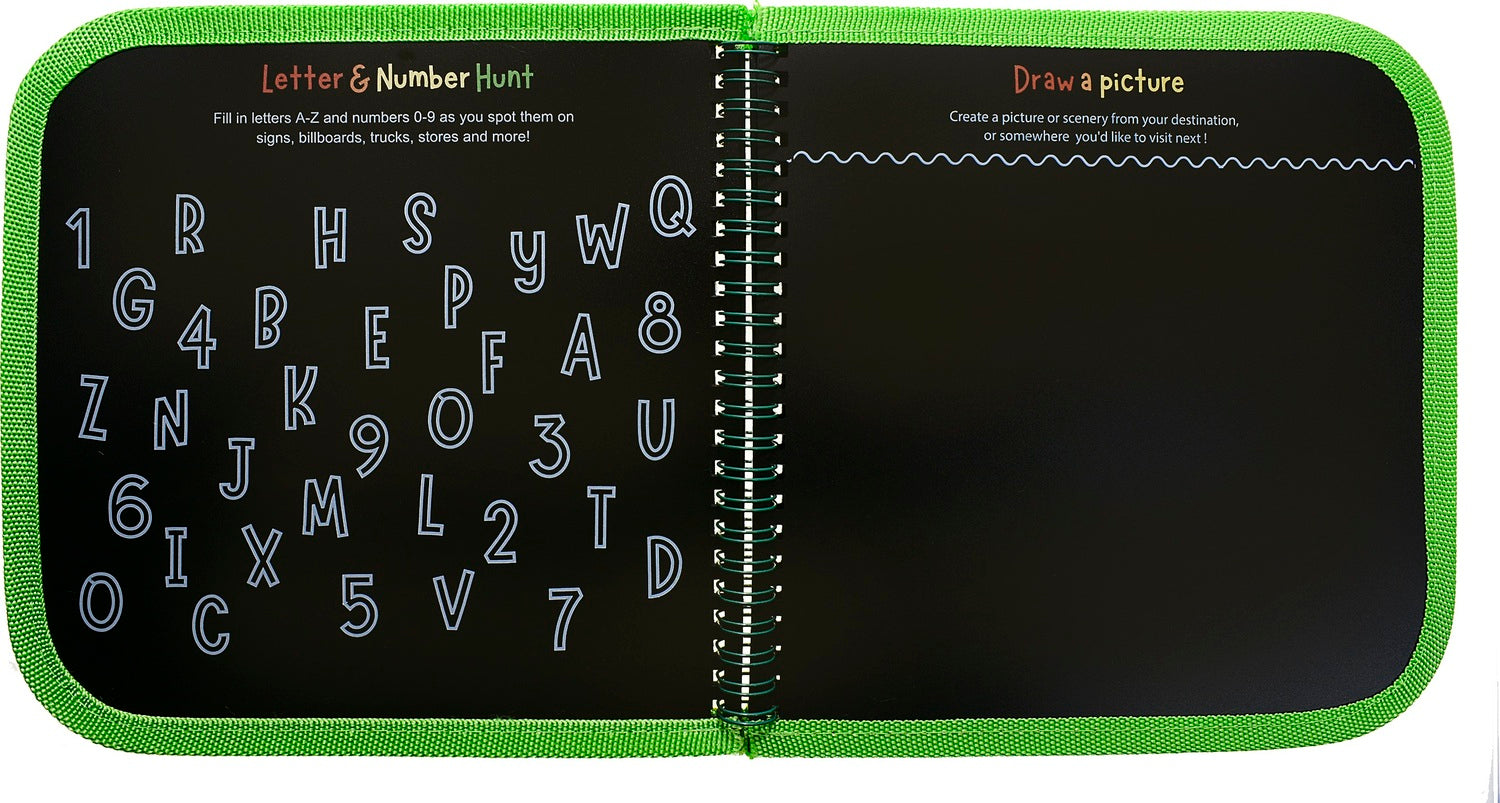 Letter & Number Hunt
Fill in letters A-Z and numbers 0-9 as you spot them on
signs, billboards, trucks, stores and more!
1 R H S y W Q
G 4 B E P F A 8
Z N K 9 O 3 U
6 J M L 2 T
I X D
O C 5 V 7
Draw a picture
Create a picture or scenery from your destination,
or somewhere you'd like to visit next !